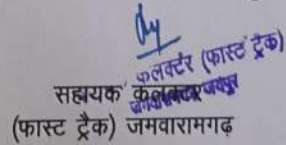 कलक्टर (फास्ट ट्रैक)
सहायक कलक्टर
(फास्ट ट्रैक) जमवारामगढ़